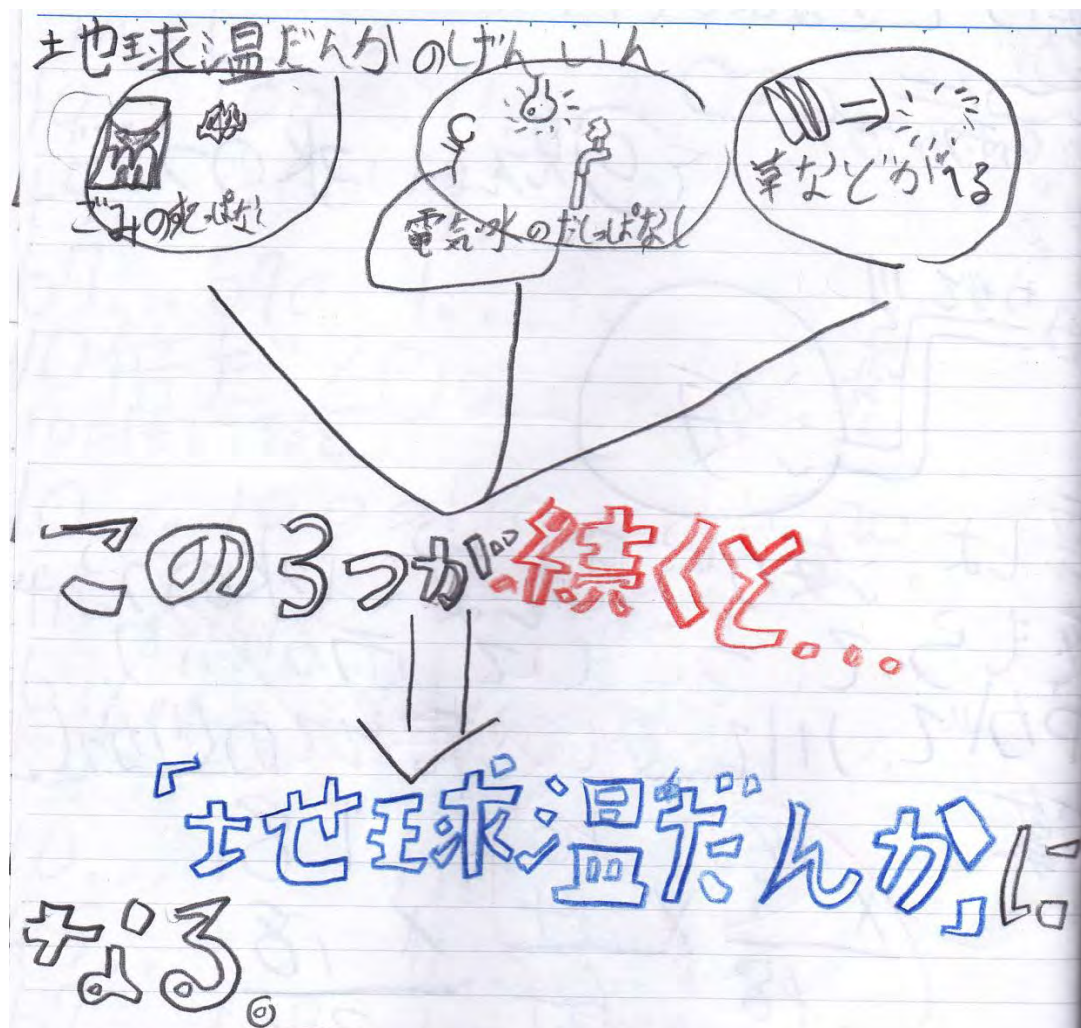 地球温だんかのげんいん
ごみの
電気水のだしっぱなし
草などがへる
この3つが続くと...
「地球温だんか」に
なる。